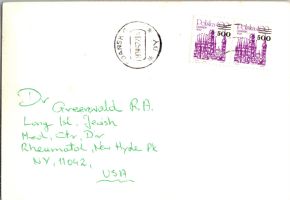 Polska
500
500
GDAŃSK
Dr Greenwald R.A.
Long Isl. Jewish
Med. Ctr. Div
Rheumatol, New Hyde Pk
NY, 11042,
USA